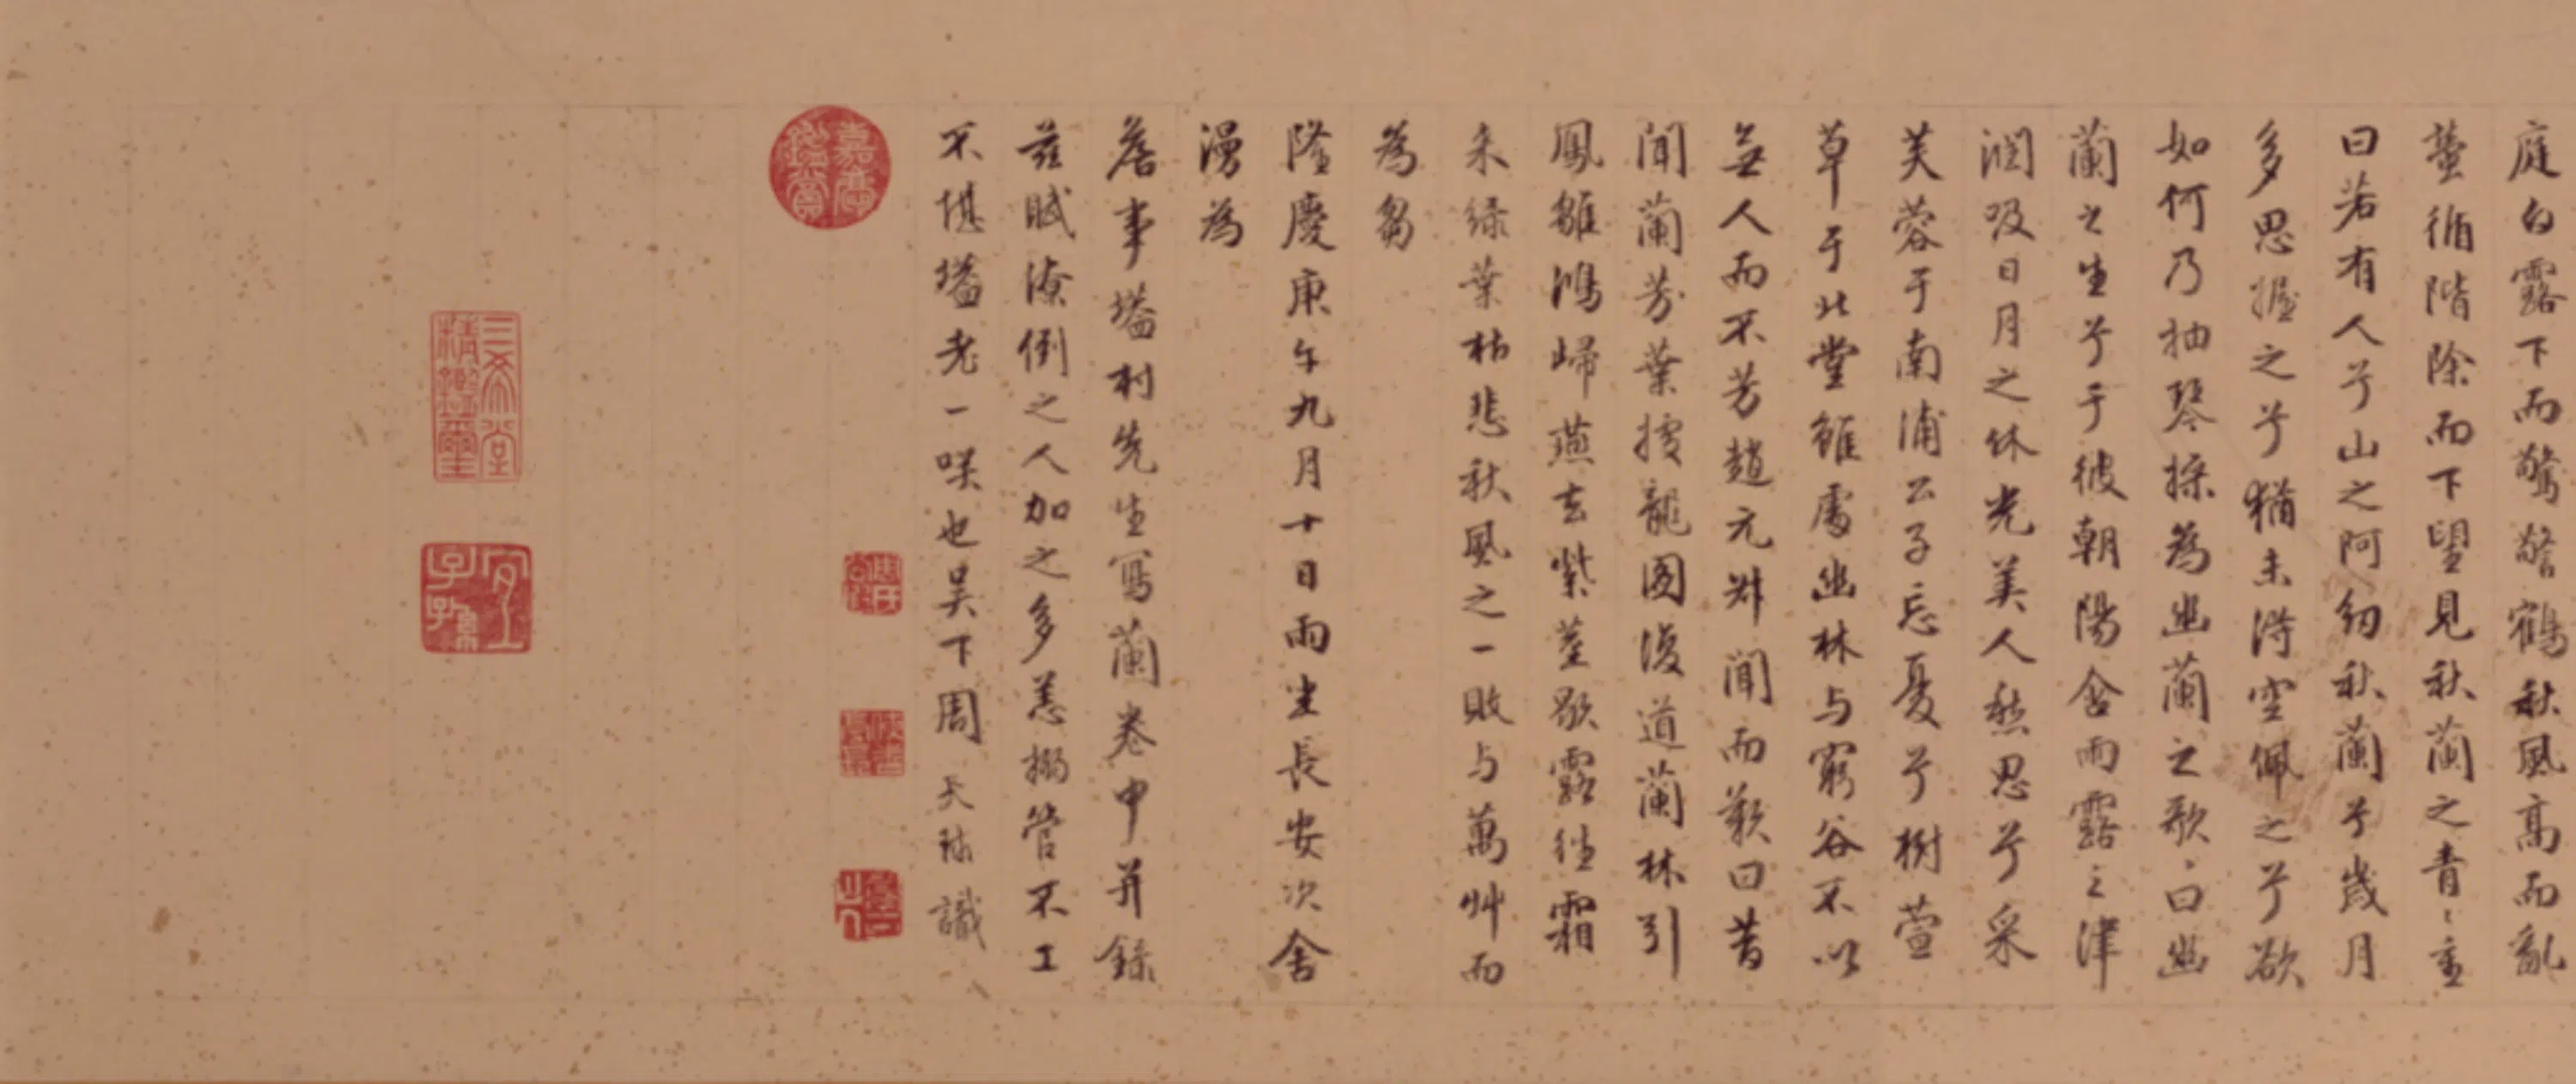 庭白露下而驚警鶴秋風高而亂
蛩循階除而下望見秋蘭之青〻重
曰若有人兮山之阿紉秋蘭兮歲月
多思握之兮猶未得空佩之兮欲
如何乃抽琴操為幽蘭之歌〻曰幽
蘭之生兮于彼朝陽含雨露之津
潤吸日月之休光美人愁思兮采
芙蓉于南浦公子忘憂兮樹萱
草于北堂雖處幽林与窮谷不以
無人而不芳趙元淑聞而歎曰昔
聞蘭芳葉據龍圖復道蘭林引
鳳雛鴻歸燕去紫莖歇露往霜
來綠葉枯悲秋風之一敗与萬艸而
為芻
隆慶庚午九月十日雨坐長安次舍
漫為
詹事塭村先生寫蘭卷中并錄
茲賦潦倒之人加之多恙搦管不工
不堪塭老一咲也吴下周天球識
嘉慶鑑賞
三希堂精鑑璽
宜子孫